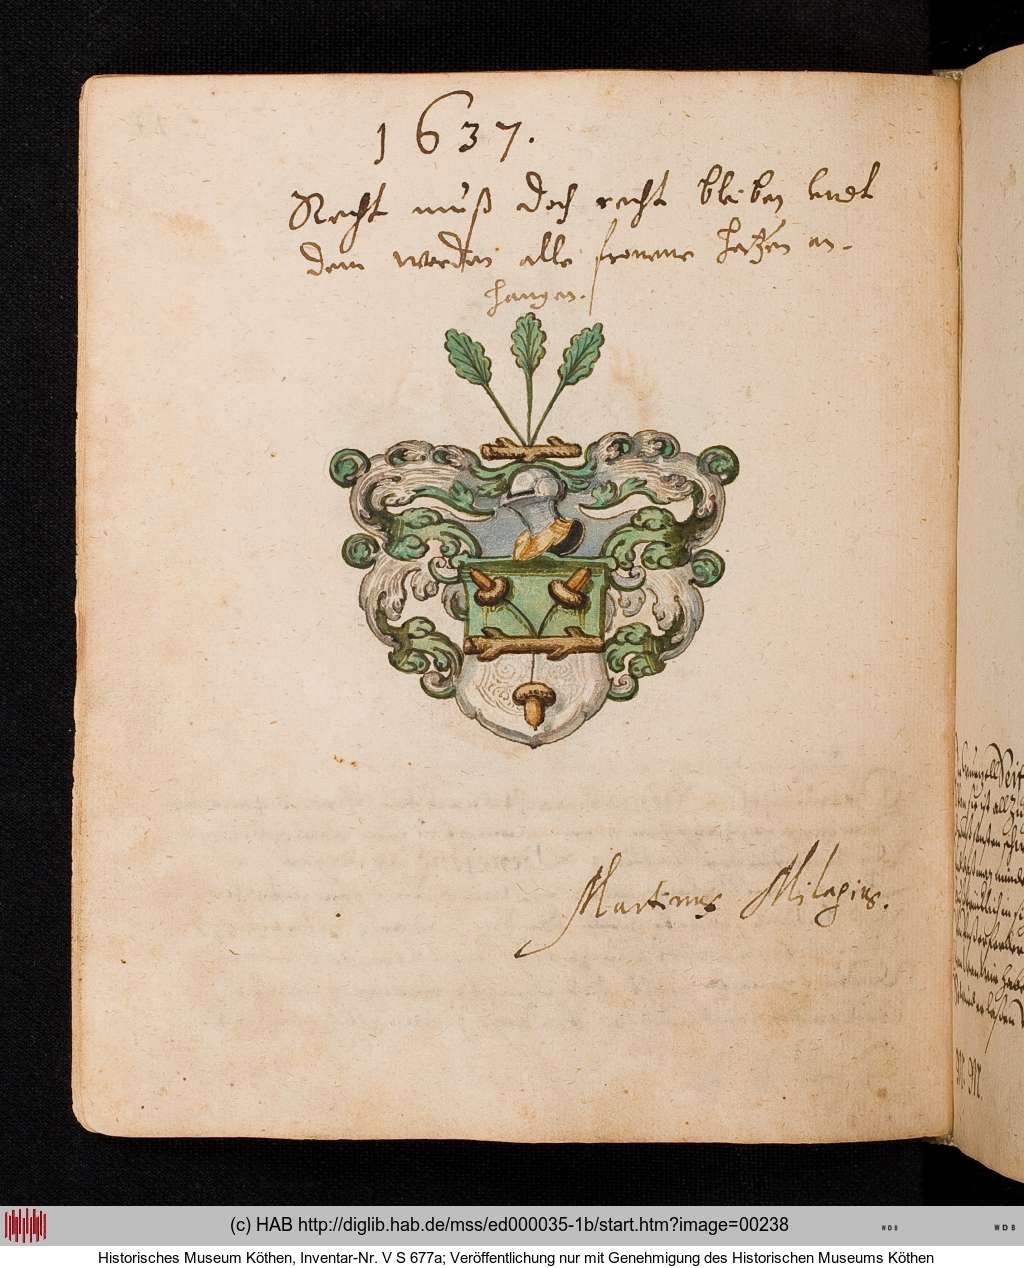 1637.
Recht muß doch recht bleiben vndt
dem werden alle fromme Hertzen an-
hangen.
Martinus Milagius.
(c) HAB http://diglib.hab.de/mss/ed000035-1b/start.htm?image=00238
WDB
WDB
Historisches Museum Köthen, Inventar-Nr. V S 677a; Veröffentlichung nur mit Genehmigung des Historischen Museums Köthen